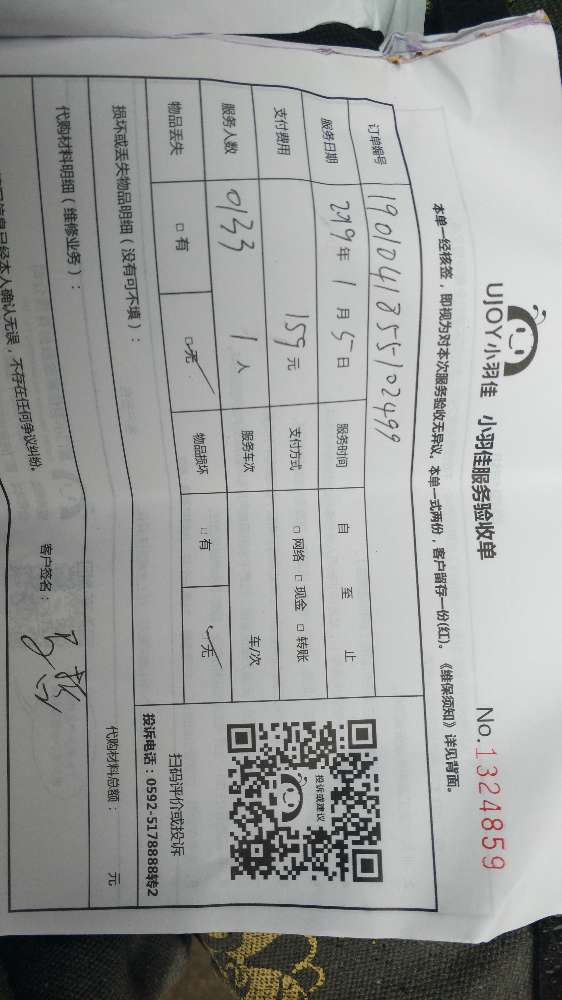 UJOY小羽佳 小羽佳服务验收单
No.1324859
本单一经核签，即视为对本次服务验收无异议，本单一式两份，客户留存一份(红)。《维保须知》详见背面。
订单编号 1901041855102499
服务日期 2019年 1 月 5 日 服务时间 自 至 止
支付费用 159 元 支付方式 □ 网络 □ 现金 □ 转账
服务人数 0133 1 人 服务车次 车/次
物品丢失 □ 有 □ 无 物品损坏 □ 有 □ 无
投诉或建议
扫码评价或投诉
投诉电话：0592-5178888转2
损坏或丢失物品明细（没有可不填）：
代购材料明细（维修业务）：
代购材料总额： 元
信息已经本人确认无误，不存在任何争议纠纷。
客户签名：